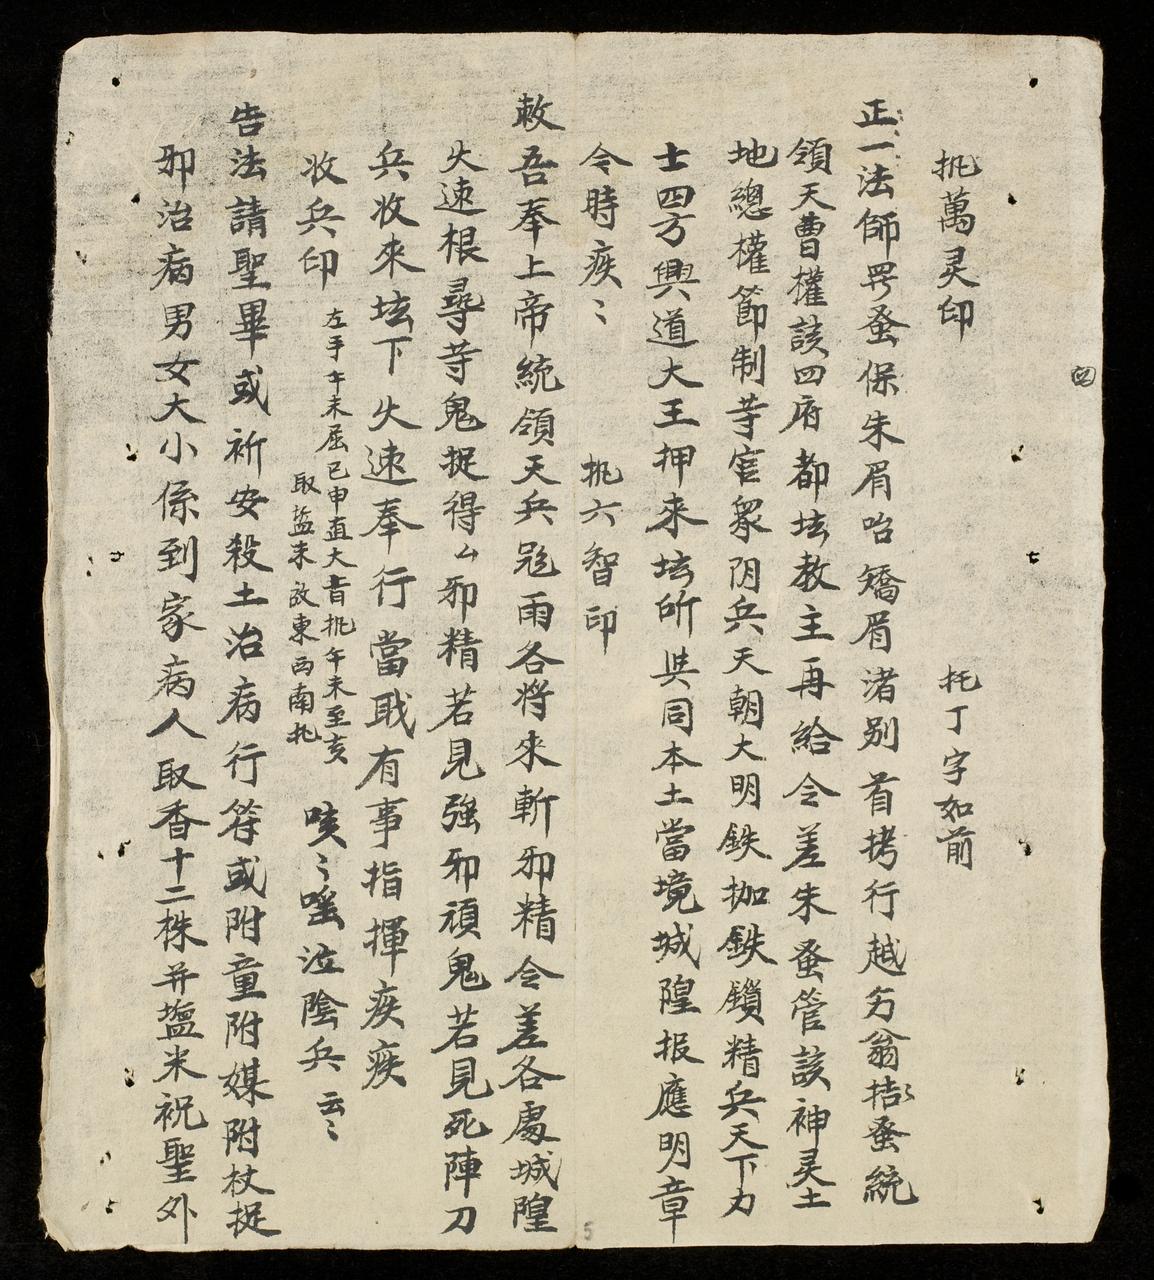 執萬灵印 托丁字如前
正一法師 保朱眉 矯眉渚别首拷行越 翁 統
領天曹權該四府都坛教主再給令差朱 管該神灵土
地總權節制䓁官衆阴兵天朝大明鉄枷鉄鎖精兵天下力
士四方興道大王押来坛所共同本土當境城隍报應明章
令時疾〻 六智印
敕吾奉上帝統領天兵 雨各将來斬邪精令差各處城隍
火速根尋䓁鬼捉得厶邪精若見强邪頑鬼若見死陣刀
兵收來坛下火速奉行當 有事指揮疾疾
收兵印 左手午未屈巳申直大 午未至亥
取盐末放東西南北 唝〻 泣陰兵云〻
告法請聖畢或祈安殺土治病行符或附童附媒附杖捉
邪治病男女大小係到家病人取香十二株并塩米祝聖外
5